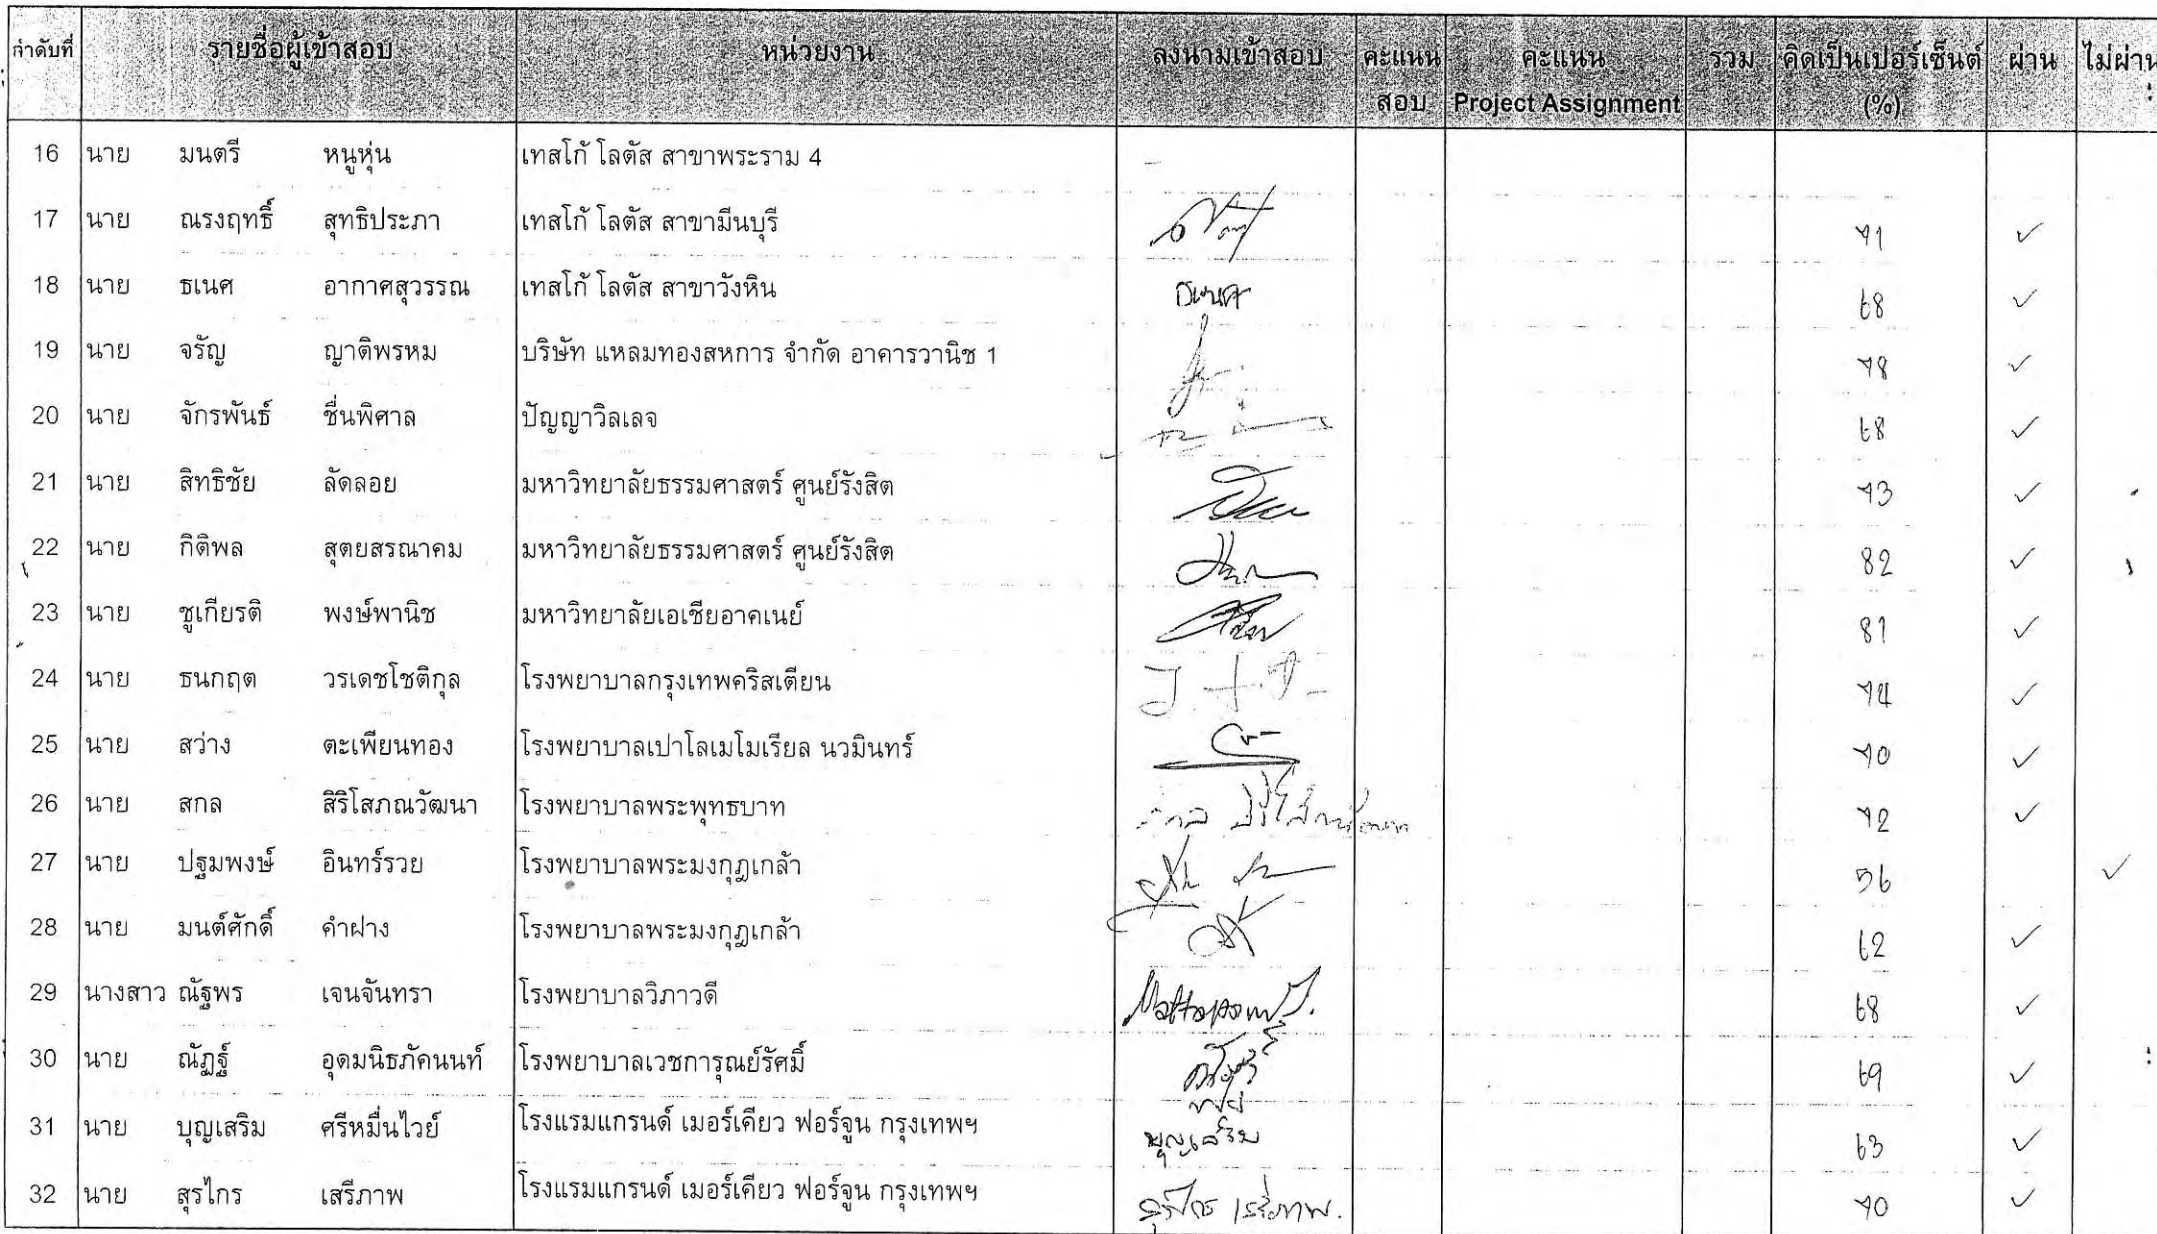 ลำดับที่ รายชื่อผู้เข้าสอบ หน่วยงาน ลงนามเข้าสอบ คะแนน คะแนน รวม คิดเป็นเปอร์เซ็นต์ ผ่าน ไม่ผ่าน
สอบ Project Assignment (%)
16 นาย มนตรี หนูหุ่น เทสโก้ โลตัส สาขาพระราม 4 -
17 นาย ณรงฤทธิ์ สุทธิประภา เทสโก้ โลตัส สาขามีนบุรี 71 ✓
18 นาย ธเนศ อากาศสุวรรณ เทสโก้ โลตัส สาขาวังหิน ธเนศ 68 ✓
19 นาย จรัญ ญาติพรหม บริษัท แหลมทองสหการ จำกัด อาคารวานิช 1 78 ✓
20 นาย จักรพันธ์ ชื่นพิศาล ปัญญาวิลเลจ 68 ✓
21 นาย สิทธิชัย ลัดลอย มหาวิทยาลัยธรรมศาสตร์ ศูนย์รังสิต 73 ✓
22 นาย กิติพล สุตยสรณาคม มหาวิทยาลัยธรรมศาสตร์ ศูนย์รังสิต 82 ✓
23 นาย ชูเกียรติ พงษ์พานิช มหาวิทยาลัยเอเชียอาคเนย์ 81 ✓
24 นาย ธนกฤต วรเดชโชติกุล โรงพยาบาลกรุงเทพคริสเตียน 74 ✓
25 นาย สว่าง ตะเพียนทอง โรงพยาบาลเปาโลเมโมเรียล นวมินทร์ 70 ✓
26 นาย สกล สิริโสภณวัฒนา โรงพยาบาลพระพุทธบาท สกล สิริโสภณวัฒนา 72 ✓
27 นาย ปฐมพงษ์ อินทร์รวย โรงพยาบาลพระมงกุฎเกล้า 56 ✓
28 นาย มนต์ศักดิ์ คำฝาง โรงพยาบาลพระมงกุฎเกล้า 62 ✓
29 นางสาว ณัฐพร เจนจันทรา โรงพยาบาลวิภาวดี Nattaporn J. 68 ✓
30 นาย ณัฏฐ์ อุดมนิธภัคนนท์ โรงพยาบาลเวชการุณย์รัศมิ์ 69 ✓
31 นาย บุญเสริม ศรีหมื่นไวย์ โรงแรมแกรนด์ เมอร์เคียว ฟอร์จูน กรุงเทพฯ บุญเสริม 63 ✓
32 นาย สุรไกร เสรีภาพ โรงแรมแกรนด์ เมอร์เคียว ฟอร์จูน กรุงเทพฯ สุรไกร เสรีภาพ. 70 ✓